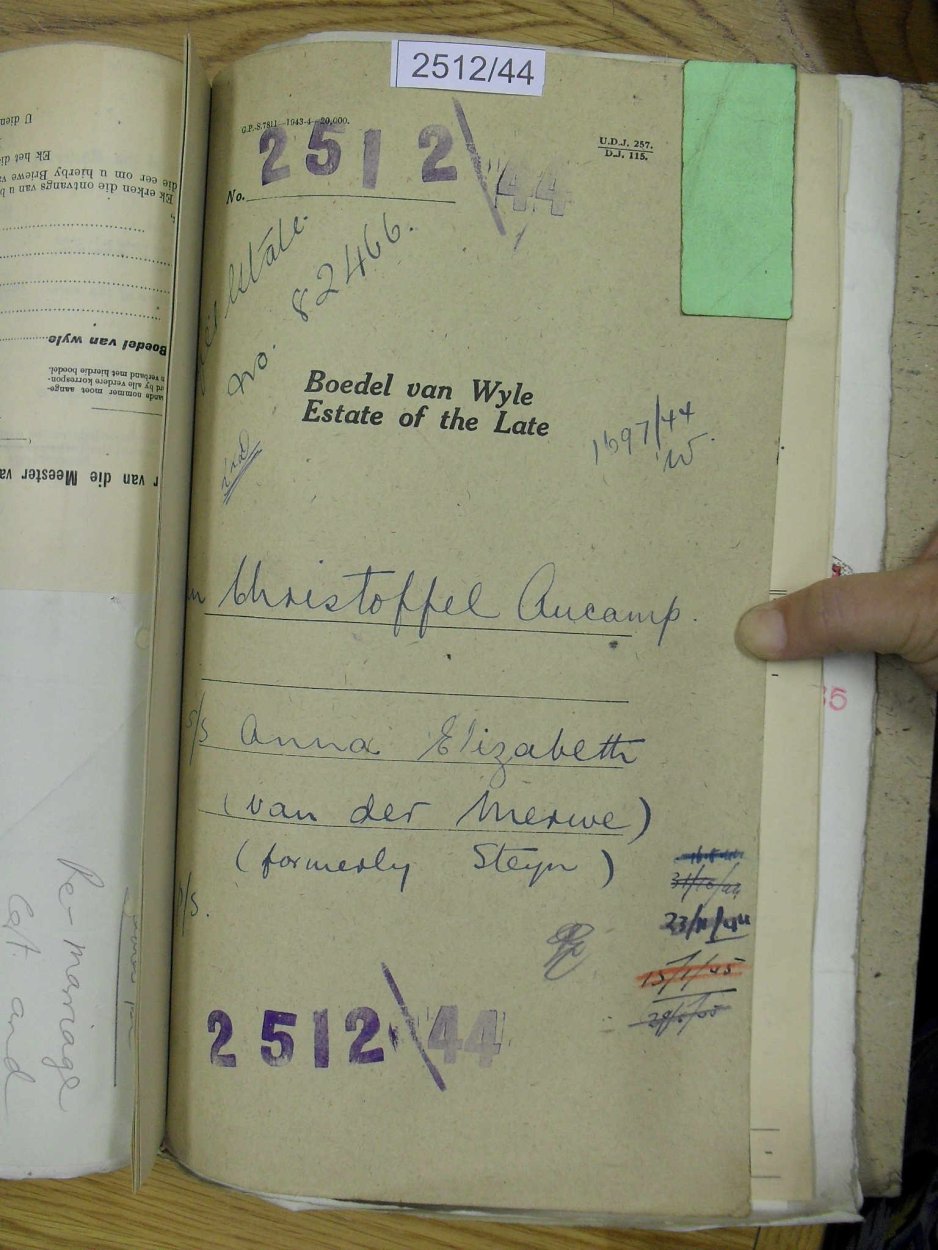 2512/44
G.P.-S.7811—1943-4—20,000.
U.D.J. 257.
D.J. 115.
No. 2512/44
Estate
No. 82466.
Boedel van Wyle
Estate of the Late
1697/44
Christoffel Aucamp.
s/s Anna Elizabeth
(van der Merwe)
(formerly Steyn)
/s.
31/10/44
23/11/44
15/1/45
2512/44
35
U dien
Ek het die
die eer om u hierby Briewe va
Ek erken die ontvangs van u b
Boedel van wyle
n verband met hierdie boedel.
rd by alle verdere korrespon-
ande nommer moet aange-
r van die Meester va
Re-marriage
Cft. and